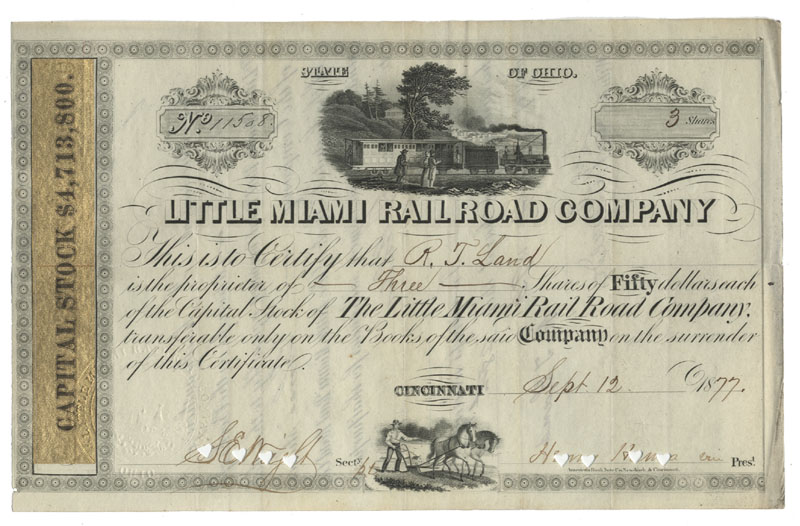 CAPITAL STOCK $4,713,800.
STATE OF OHIO.
No 11508.
3 Shares
LITTLE MIAMI RAILROAD COMPANY
This is to Certify that R. T. Land
is the proprietor of Three Shares of Fifty dollars each
of the Capital Stock of The Little Miami Rail Road Company,
transferable only on the Books of the said Company on the surrender
of this Certificate.
CINCINNATI Sept 12 1877.
S E Wright Secty.
Henry Presd.
American Bank Note Co. New York & Cincinnati.